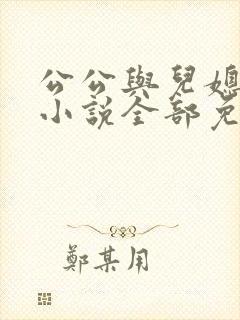 公公與兒媳
小說全部免
鄭某用